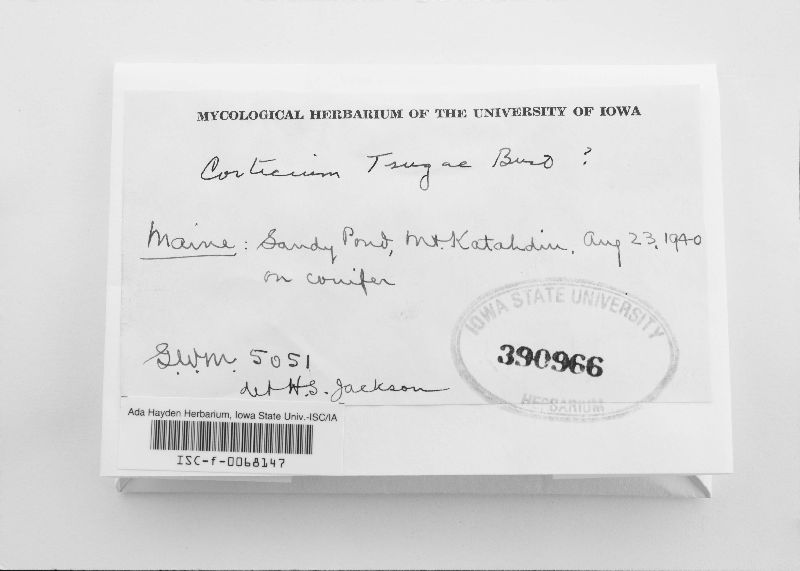 MYCOLOGICAL HERBARIUM OF THE UNIVERSITY OF IOWA
Corticium Tsugae Burt ?
Maine: Sandy Pond, Mt. Katahdin, Aug 23, 1940
on conifer
IOWA STATE UNIVERSITY
390966
HERBARIUM
G.W.M. 5051
det H.S. Jackson
Ada Hayden Herbarium, Iowa State Univ.-ISC/IA
ISC-f-0068147